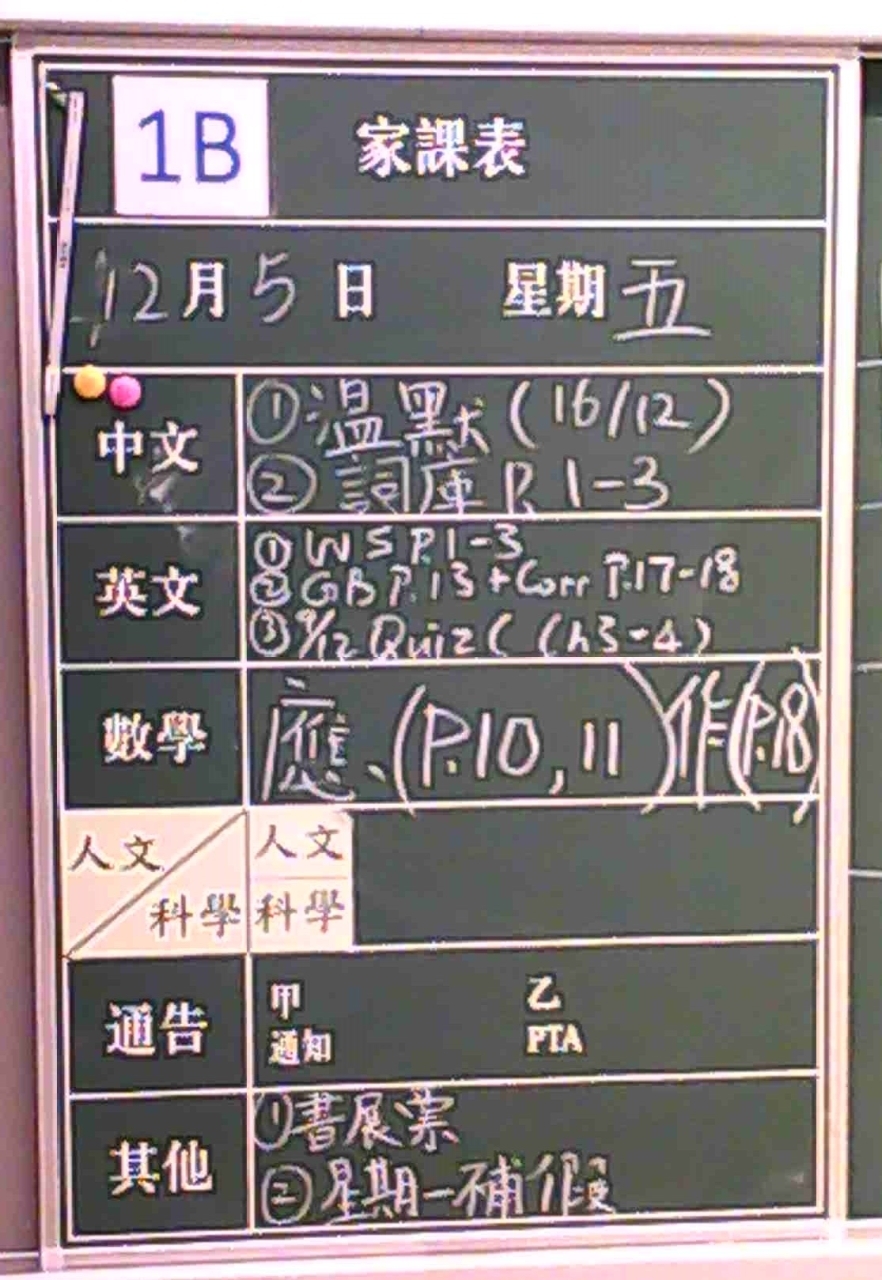 1B 家課表
12月5日 星期五
中文
①溫默(16/12)
②詞庫 P.1-3
英文
①WS P.1-3
②GB P.13+Corr P.17-18
③9/12 Quiz( Ch3-4)
數學
應、(P.10,11)作(P.18)
人文 人文
科學 科學
通告
甲 乙
通知 PTA
其他
①書展票
②星期一補假